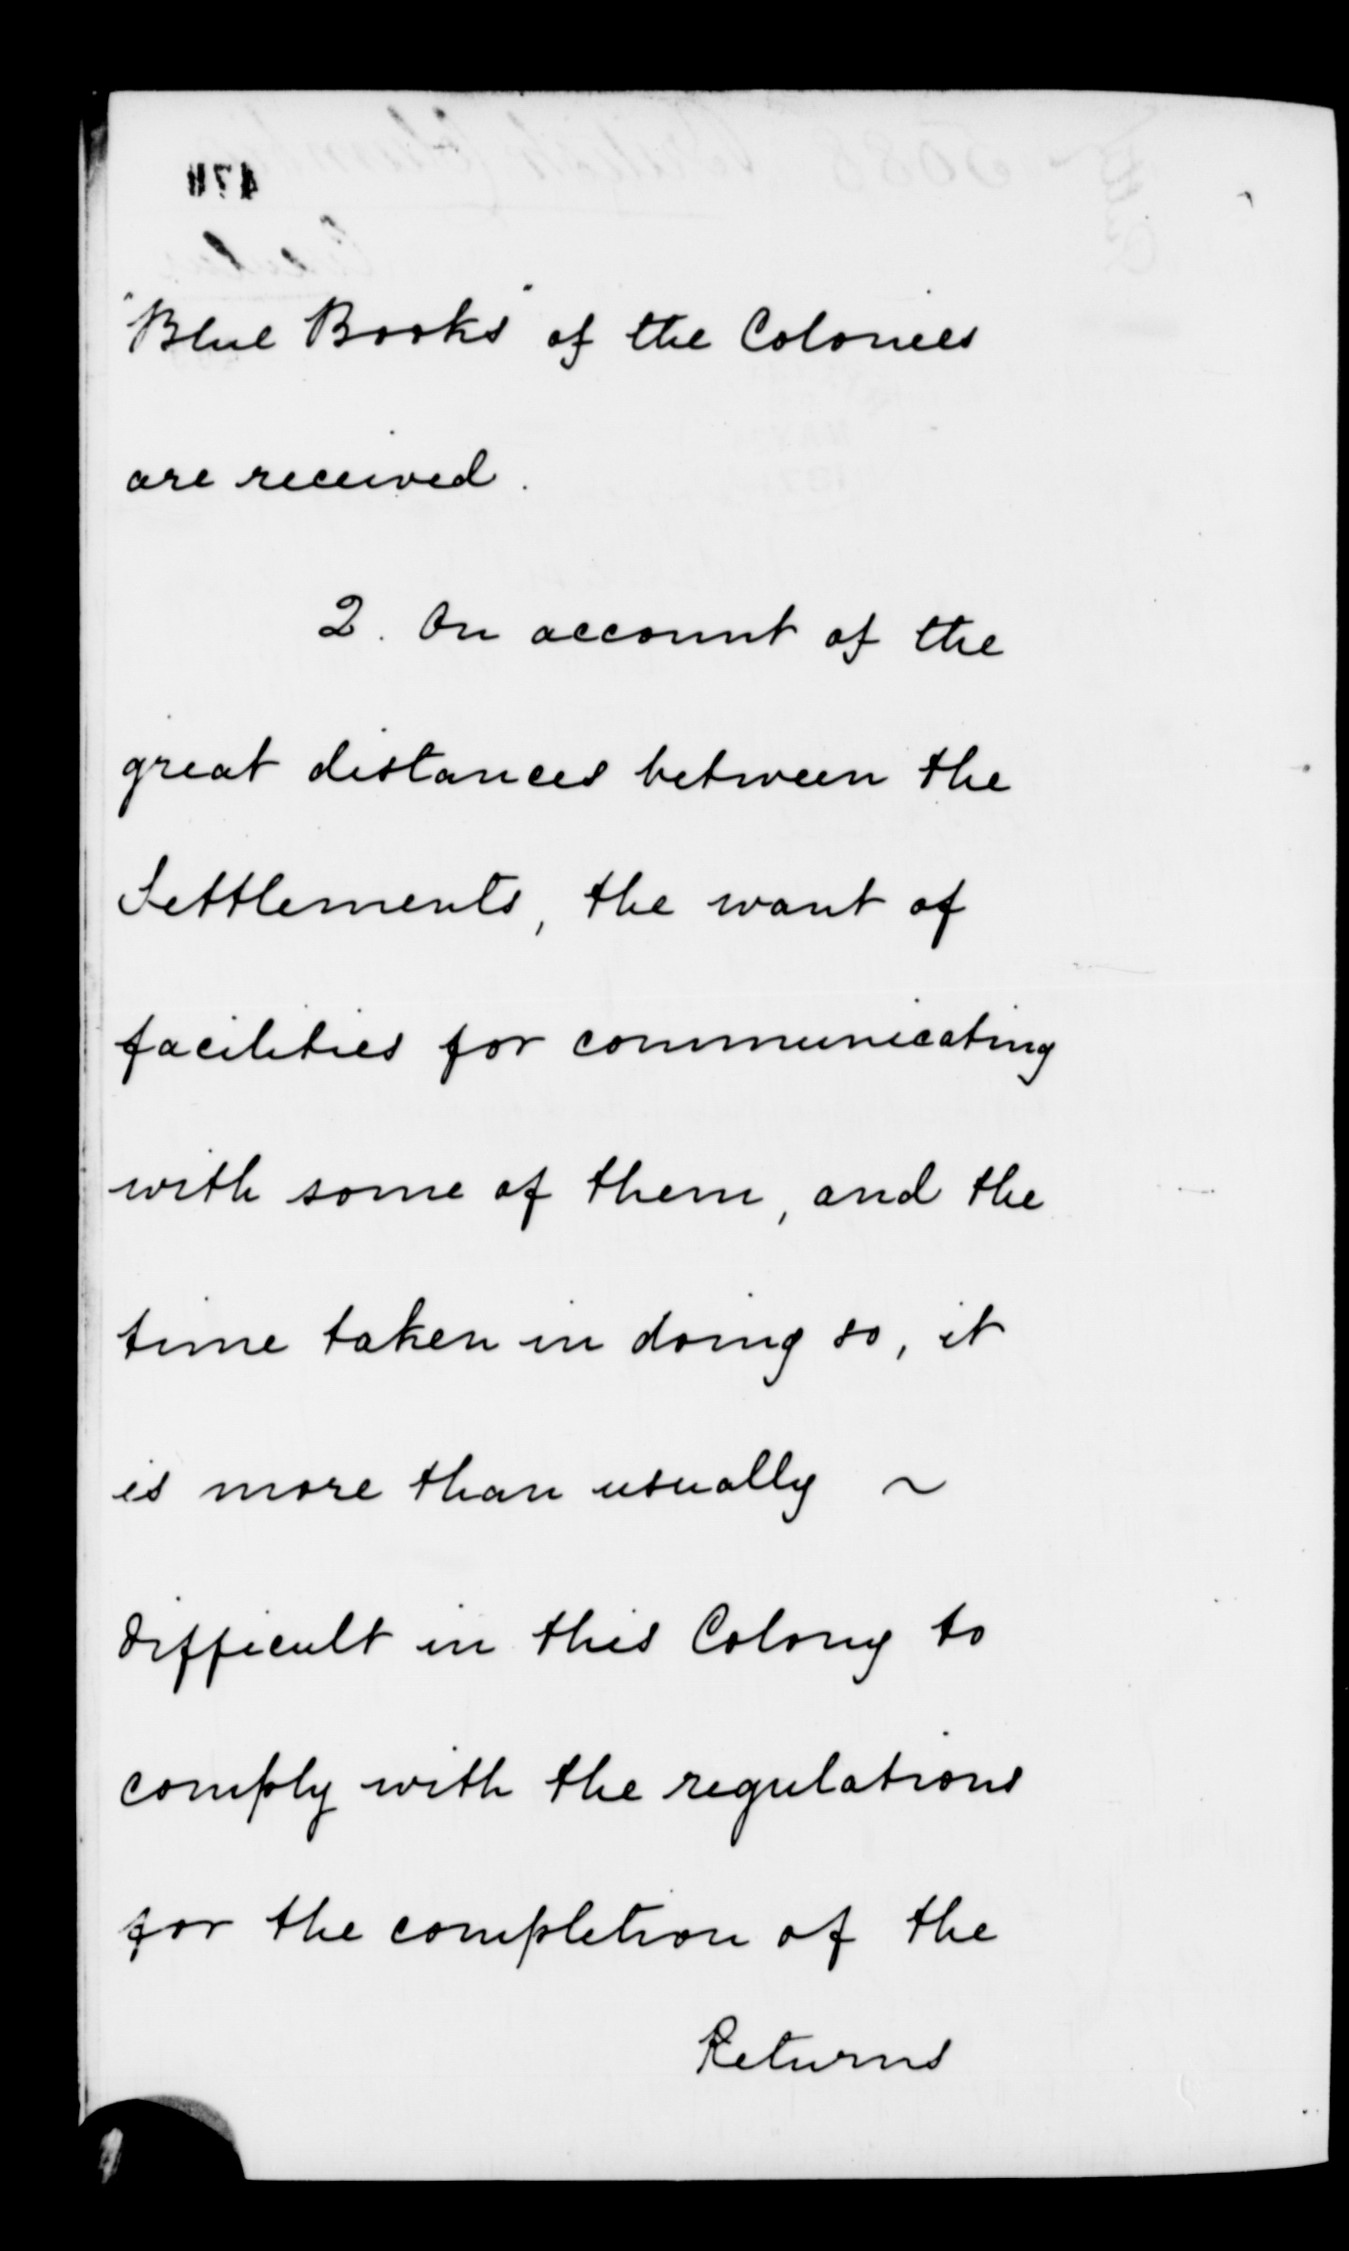 "Blue Books" of the Colonies
are received.
2. On account of the
great distances between the
Settlements, the want of
facilities for communicating
with some of them, and the
time taken in doing so, it
is more than usually ~
difficult in this Colony to
comply with the regulations
for the completion of the
Returns